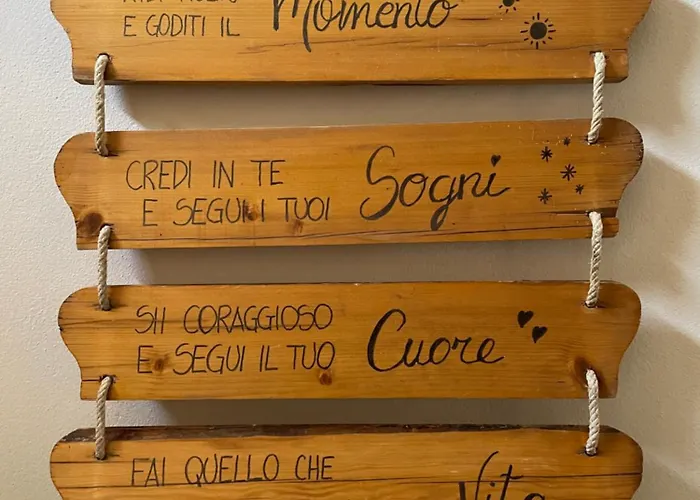 E GODITI IL Momento
CREDI IN TE
E SEGUI I TUOI Sogni
SII CORAGGIOSO
E SEGUI IL TUO Cuore
FAI QUELLO CHE
Vita